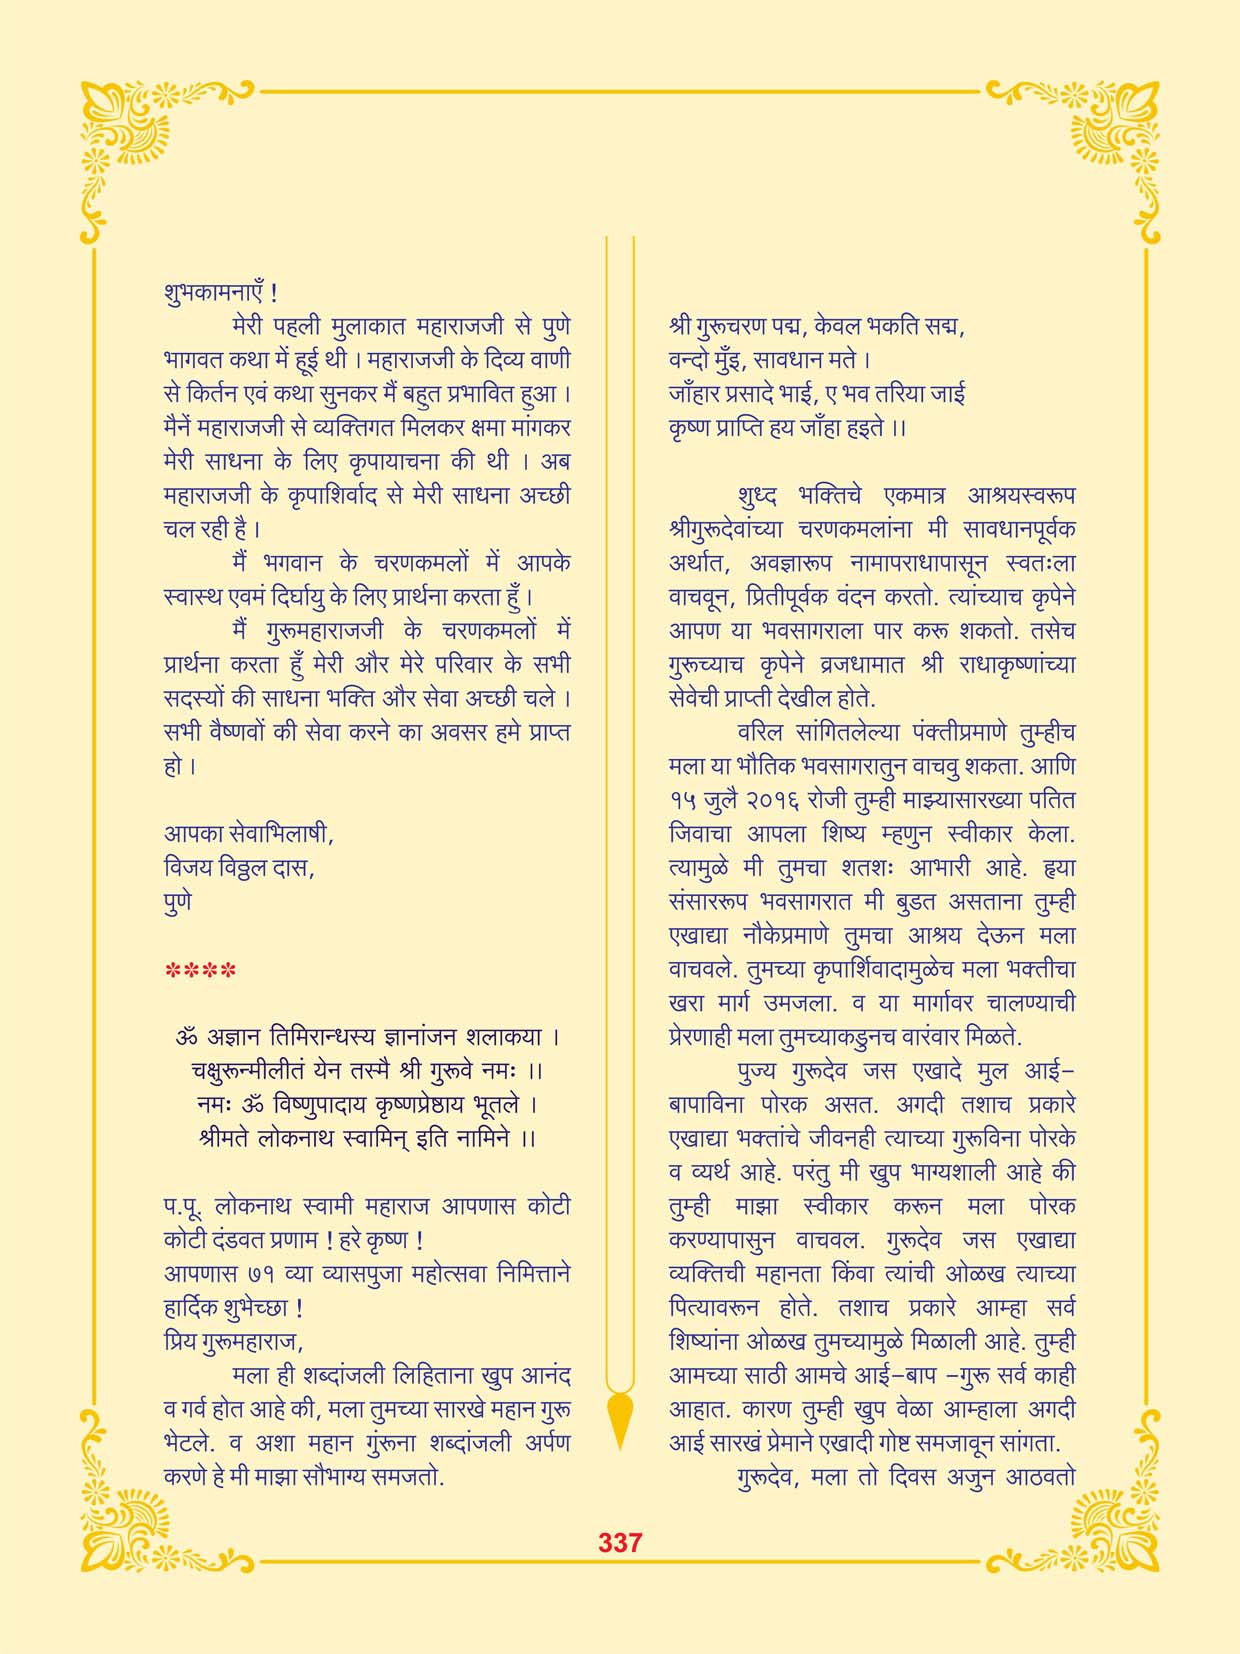 शुभकामनाएँ !
मेरी पहली मुलाकात महाराजजी से पुणे
भागवत कथा में हूई थी । महाराजजी के दिव्य वाणी
से किर्तन एवं कथा सुनकर मैं बहुत प्रभावित हुआ ।
मैनें महाराजजी से व्यक्तिगत मिलकर क्षमा मांगकर
मेरी साधना के लिए कृपायाचना की थी । अब
महाराजजी के कृपाशिर्वाद से मेरी साधना अच्छी
चल रही है ।
मैं भगवान के चरणकमलों में आपके
स्वास्थ एवमं दिर्घायु के लिए प्रार्थना करता हुँ ।
मैं गुरूमहाराजजी के चरणकमलों में
प्रार्थना करता हुँ मेरी और मेरे परिवार के सभी
सदस्यों की साधना भक्ति और सेवा अच्छी चले ।
सभी वैष्णवों की सेवा करने का अवसर हमे प्राप्त
हो ।
आपका सेवाभिलाषी,
विजय विठ्ठल दास,
पुणे
****
ॐ अज्ञान तिमिरान्धस्य ज्ञानांजन शलाकया ।
चक्षुरून्मीलीतं येन तस्मै श्री गुरूवे नमः ।।
नमः ॐ विष्णुपादाय कृष्णप्रेष्ठाय भूतले ।
श्रीमते लोकनाथ स्वामिन् इति नामिने ।।
प.पू. लोकनाथ स्वामी महाराज आपणास कोटी
कोटी दंडवत प्रणाम ! हरे कृष्ण !
आपणास ७१ व्या व्यासपुजा महोत्सवा निमित्ताने
हार्दिक शुभेच्छा !
प्रिय गुरूमहाराज,
मला ही शब्दांजली लिहिताना खुप आनंद
व गर्व होत आहे की, मला तुमच्या सारखे महान गुरू
भेटले. व अशा महान गुंरूना शब्दांजली अर्पण
करणे हे मी माझा सौभाग्य समजतो.
श्री गुरूचरण पद्म, केवल भकति सद्म,
वन्दो मुँइ, सावधान मते ।
जाँहार प्रसादे भाई, ए भव तरिया जाई
कृष्ण प्राप्ति हय जाँहा हइते ।।
शुध्द भक्तिचे एकमात्र आश्रयस्वरूप
श्रीगुरूदेवांच्या चरणकमलांना मी सावधानपूर्वक
अर्थात, अवज्ञारूप नामापराधापासून स्वतःला
वाचवून, प्रितीपूर्वक वंदन करतो. त्यांच्याच कृपेने
आपण या भवसागराला पार करू शकतो. तसेच
गुरूच्याच कृपेने व्रजधामात श्री राधाकृष्णांच्या
सेवेची प्राप्ती देखील होते.
वरिल सांगितलेल्या पंक्तीप्रमाणे तुम्हीच
मला या भौतिक भवसागरातुन वाचवु शकता. आणि
१५ जुलै २०१६ रोजी तुम्ही माझ्यासारख्या पतित
जिवाचा आपला शिष्य म्हणुन स्वीकार केला.
त्यामुळे मी तुमचा शतशः आभारी आहे. हृया
संसाररूप भवसागरात मी बुडत असताना तुम्ही
एखाद्या नौकेप्रमाणे तुमचा आश्रय देऊन मला
वाचवले. तुमच्या कृपार्शिवादामुळेच मला भक्तीचा
खरा मार्ग उमजला. व या मार्गावर चालण्याची
प्रेरणाही मला तुमच्याकडुनच वारंवार मिळते.
पुज्य गुरूदेव जस एखादे मुल आई-
बापाविना पोरक असत. अगदी तशाच प्रकारे
एखाद्या भक्तांचे जीवनही त्याच्या गुरूविना पोरके
व व्यर्थ आहे. परंतु मी खुप भाग्यशाली आहे की
तुम्ही माझा स्वीकार करून मला पोरक
करण्यापासुन वाचवल. गुरूदेव जस एखाद्या
व्यक्तिची महानता किंवा त्यांची ओळख त्याच्या
पित्यावरून होते. तशाच प्रकारे आम्हा सर्व
शिष्यांना ओळख तुमच्यामुळे मिळाली आहे. तुम्ही
आमच्या साठी आमचे आई-बाप -गुरू सर्व काही
आहात. कारण तुम्ही खुप वेळा आम्हाला अगदी
आई सारखं प्रेमाने एखादी गोष्ट समजावून सांगता.
गुरूदेव, मला तो दिवस अजुन आठवतो
337